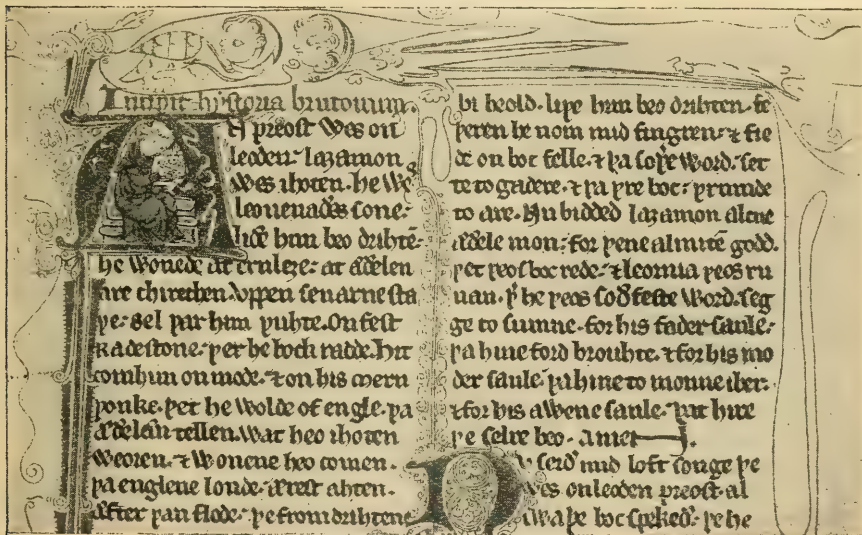 Incipit hystoria brutonum.
AN preost wes on
leoden. laȝamon
wes ihoten. he wes
leouenaðes sone.
liðe him beo drihtē.
he wonede at ernleȝe. at æðelen
are chirechen. vppen seuarne sta
þe. sel þar him þuhte. On fest
Radestone. þer he bock radde. Hit
com him on mode. ⁊ on his mern
þonke. þet he wolde of engle. þa
æðelæn tellen. wat heo ihoten
weoren. ⁊ wonene heo comen.
þa englene londe. ærest ahten.
æfter þan flode. þe from drihtene
bi heold. liþe him beo drihten. fe
þeren he nom mid fingren. ⁊ fie
de on boc felle. ⁊ þa soþe word. set
te to gadere. ⁊ þa þre boc. þrumde
to are. Nu bidded laȝamon alcne
æðele mon. for þene almitē godd.
þet þeos boc rede. ⁊ leornia þeos ru
nan. þ̄ he þeos soðfeste word. seg
ge to sumne. for his fader saule.
þa hine forð brouhte. ⁊ for his mo
der saule. þa hine to monne iber.
⁊ for his awene saule. þat hire
þe selre beo. amen.
Nu seið mid loft songe þe
wes on leoden preost. al
swa þe boc spekeð. þe he